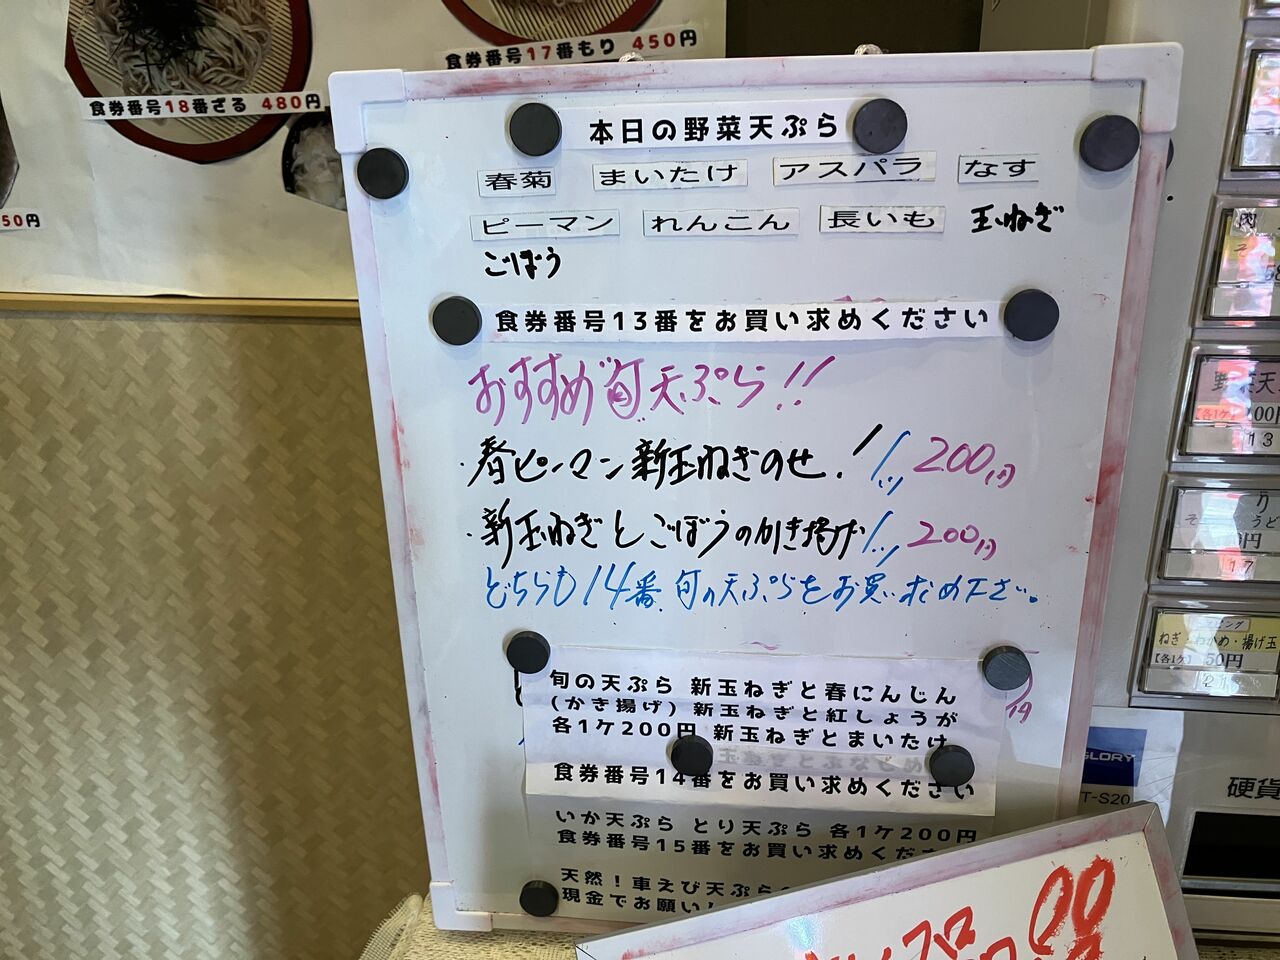 食券番号17番もり 450円
食券番号18番ざる 480円
50円
本日の野菜天ぷら
春菊 まいたけ アスパラ なす
ピーマン れんこん 長いも 玉ねぎ
ごぼう
食券番号13番をお買い求めください
おすすめ旬天ぷら!!
・春ピーマン新玉ねぎのせ! 1ヶ 200円
・新玉ねぎとごぼうのかき揚げ 1ヶ 200円
どちらも14番、旬の天ぷらをお買い求め下さい。
旬の天ぷら 新玉ねぎと春にんじん
(かき揚げ) 新玉ねぎと紅しょうが
各1ケ200円 新玉ねぎとまいたけ
食券番号14番をお買い求めください
いか天ぷら とり天ぷら 各1ケ200円
食券番号15番をお買い求めくださ
天然!車えび天ぷら
現金でお願い
肉
野菜天
【各1ケ】
13
17
ねぎ・わかめ・揚げ玉
【各1ケ】 50円
21
GLORY
T-S20
硬貨